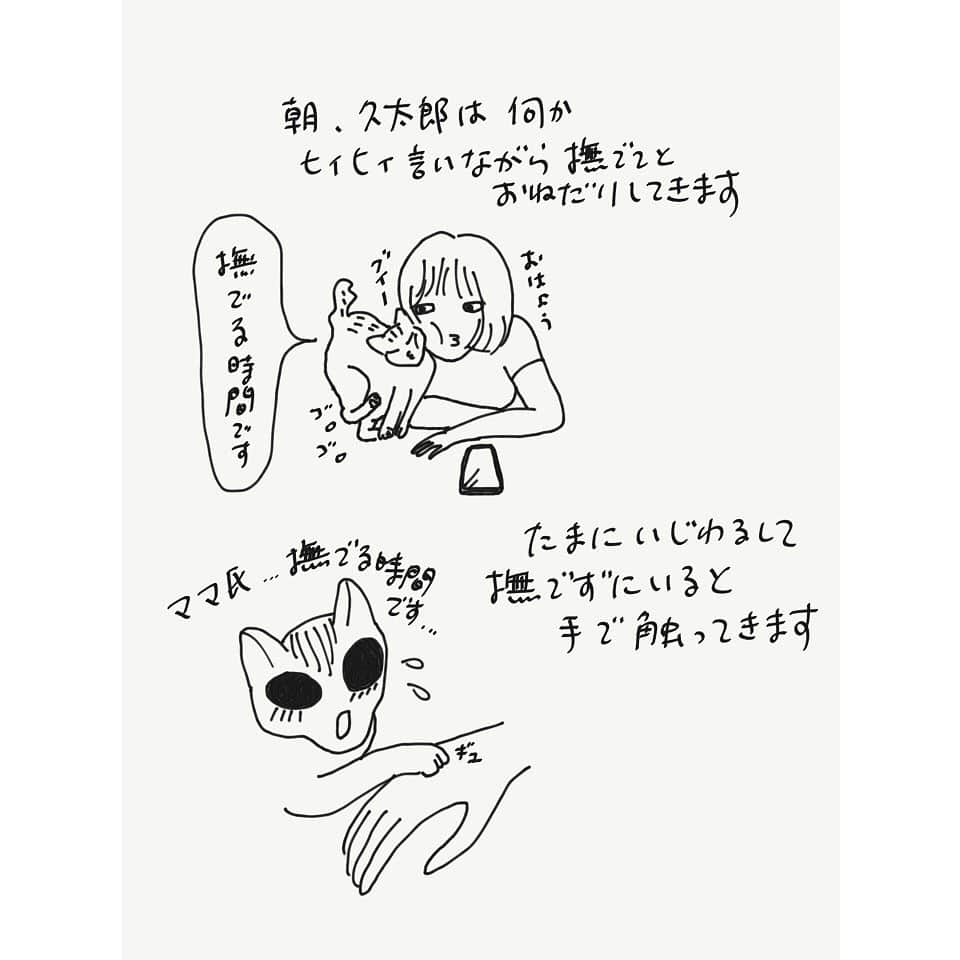 朝、久太郎は何か
ヒィヒィ言いながら撫でてと
おねだりしてきます
撫でる時間です
ブイー
おはよう
ゴロ
ゴロ
たまにいじわるして
撫でずにいると
手で触ってきます
ママ氏…撫でる時間
です…
ギュ